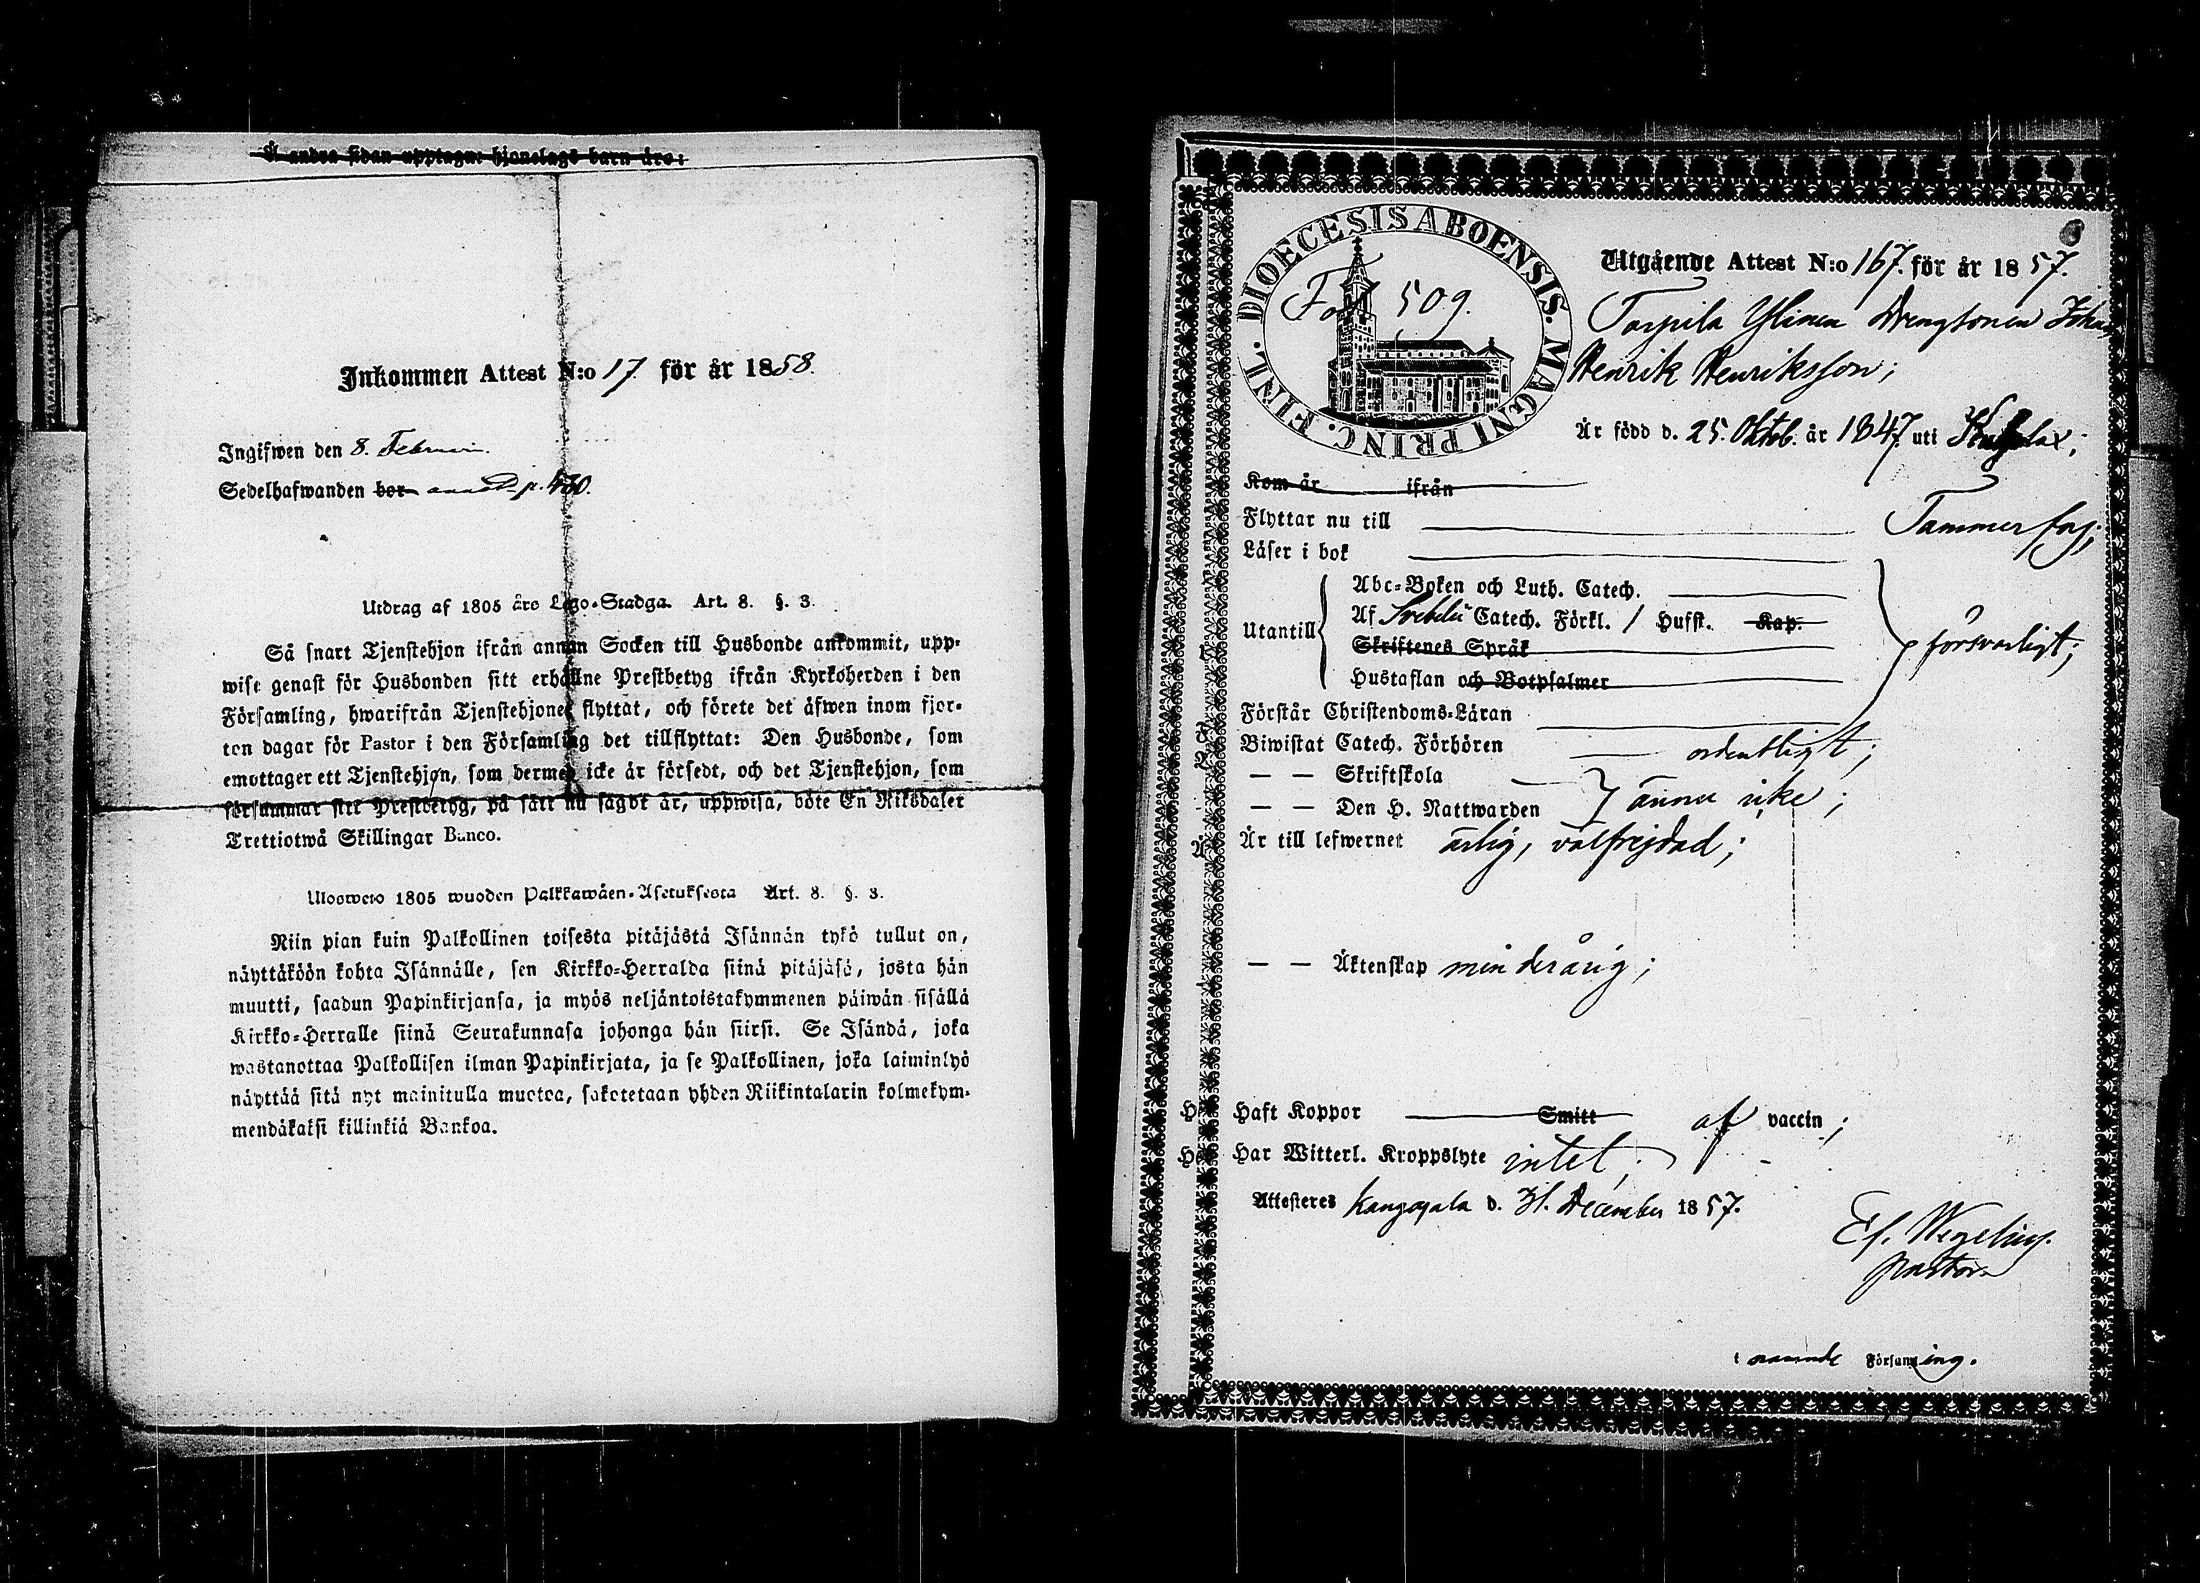 Å andra sidan upptagne hjonelags barn äro:
Inkommen Attest N:o 17 för år 1858.
Ingifwen den 8. Februari.
Sedelhafwanden bor annot. p. 430.
Utdrag af 1805 års Lego-Stadga. Art. 8. §. 3.
Så snart Tjenstehjon ifrån annan Socken till Husbonde ankommit, upp-
wise genast för Husbonden sitt erhållne Prestbetyg ifrån Kyrkoherden i den
Församling, hwarifrån Tjenstehjonet flyttat, och förete det äfwen inom fjor-
ton dagar för Pastor i den Församling det tillflyttat: Den Husbonde, som
emottager ett Tjenstehjon, som dermed icke är försedt, och det Tjenstehjon, som
försummar sitt Prestbetyg, på sätt nu sagdt är, uppwisa, böte En Riksdaler
Trettiotwå Skillingar Banco.
Ulosweto 1805 wuoden Palkkawäen-Asetuksesta Art. 8. §. 3.
Niin pian kuin Palkollinen toisesta pitäjästä Isännän tykö tullut on,
näyttäköön kohta Isännälle, sen Kirkko-Herralda siinä pitäjäsä, josta hän
muutti, saadun Papinkirjansa, ja myös neljäntoistakymmenen päiwän sisällä
Kirkko-Herralle siinä Seurakunnasa johonga hän siirsi. Se Isändä, joka
wastanottaa Palkollisen ilman Papinkirjata, ja se Palkollinen, joka laiminlyö
näyttää sitä nyt mainitulla muotoa, sakotetaan yhden Riikintalarin kolmekym-
mendäkaksi killinkiä Bankoa.
DIOECESIS ABOENSIS. MAGNI PRINC. FINL.
Fol 509.
Utgående Attest N:o 167. för år 1857.
Torpila Ylinen Drengsonen Johan
Henrik Henriksson;
Är född d. 25. Oktob. år 1847. uti
Kom år ifrån
Flyttar nu till Tammerfors;
Läser i bok
Utantill
Abc-Boken och Luth. Catech.
Af Svebelii Catech. Förkl. / Hufst. Kap.
Skriftenes Språk
Hustaflan och Botpsalmer
försvarligt;
Förstår Christendoms-Läran
Biwistat Catech. Förhören ordentligt;
— — Skriftskola
— — Den H. Nattwarden ännu icke;
Är till lefwernet ärlig, välfrejdad;
— — Äktenskap minderårig;
Haft Koppor Smitt af vaccin;
Har Witterl. Kroppslyte intet;
Attesteres Kangasala d. 31. December 1857.
Ef. Wegelius.
pastor
i Församling.